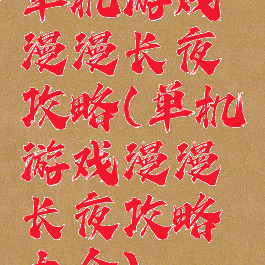 单机游戏
漫漫长夜
攻略(单机
游戏漫漫
长夜攻略
大全)